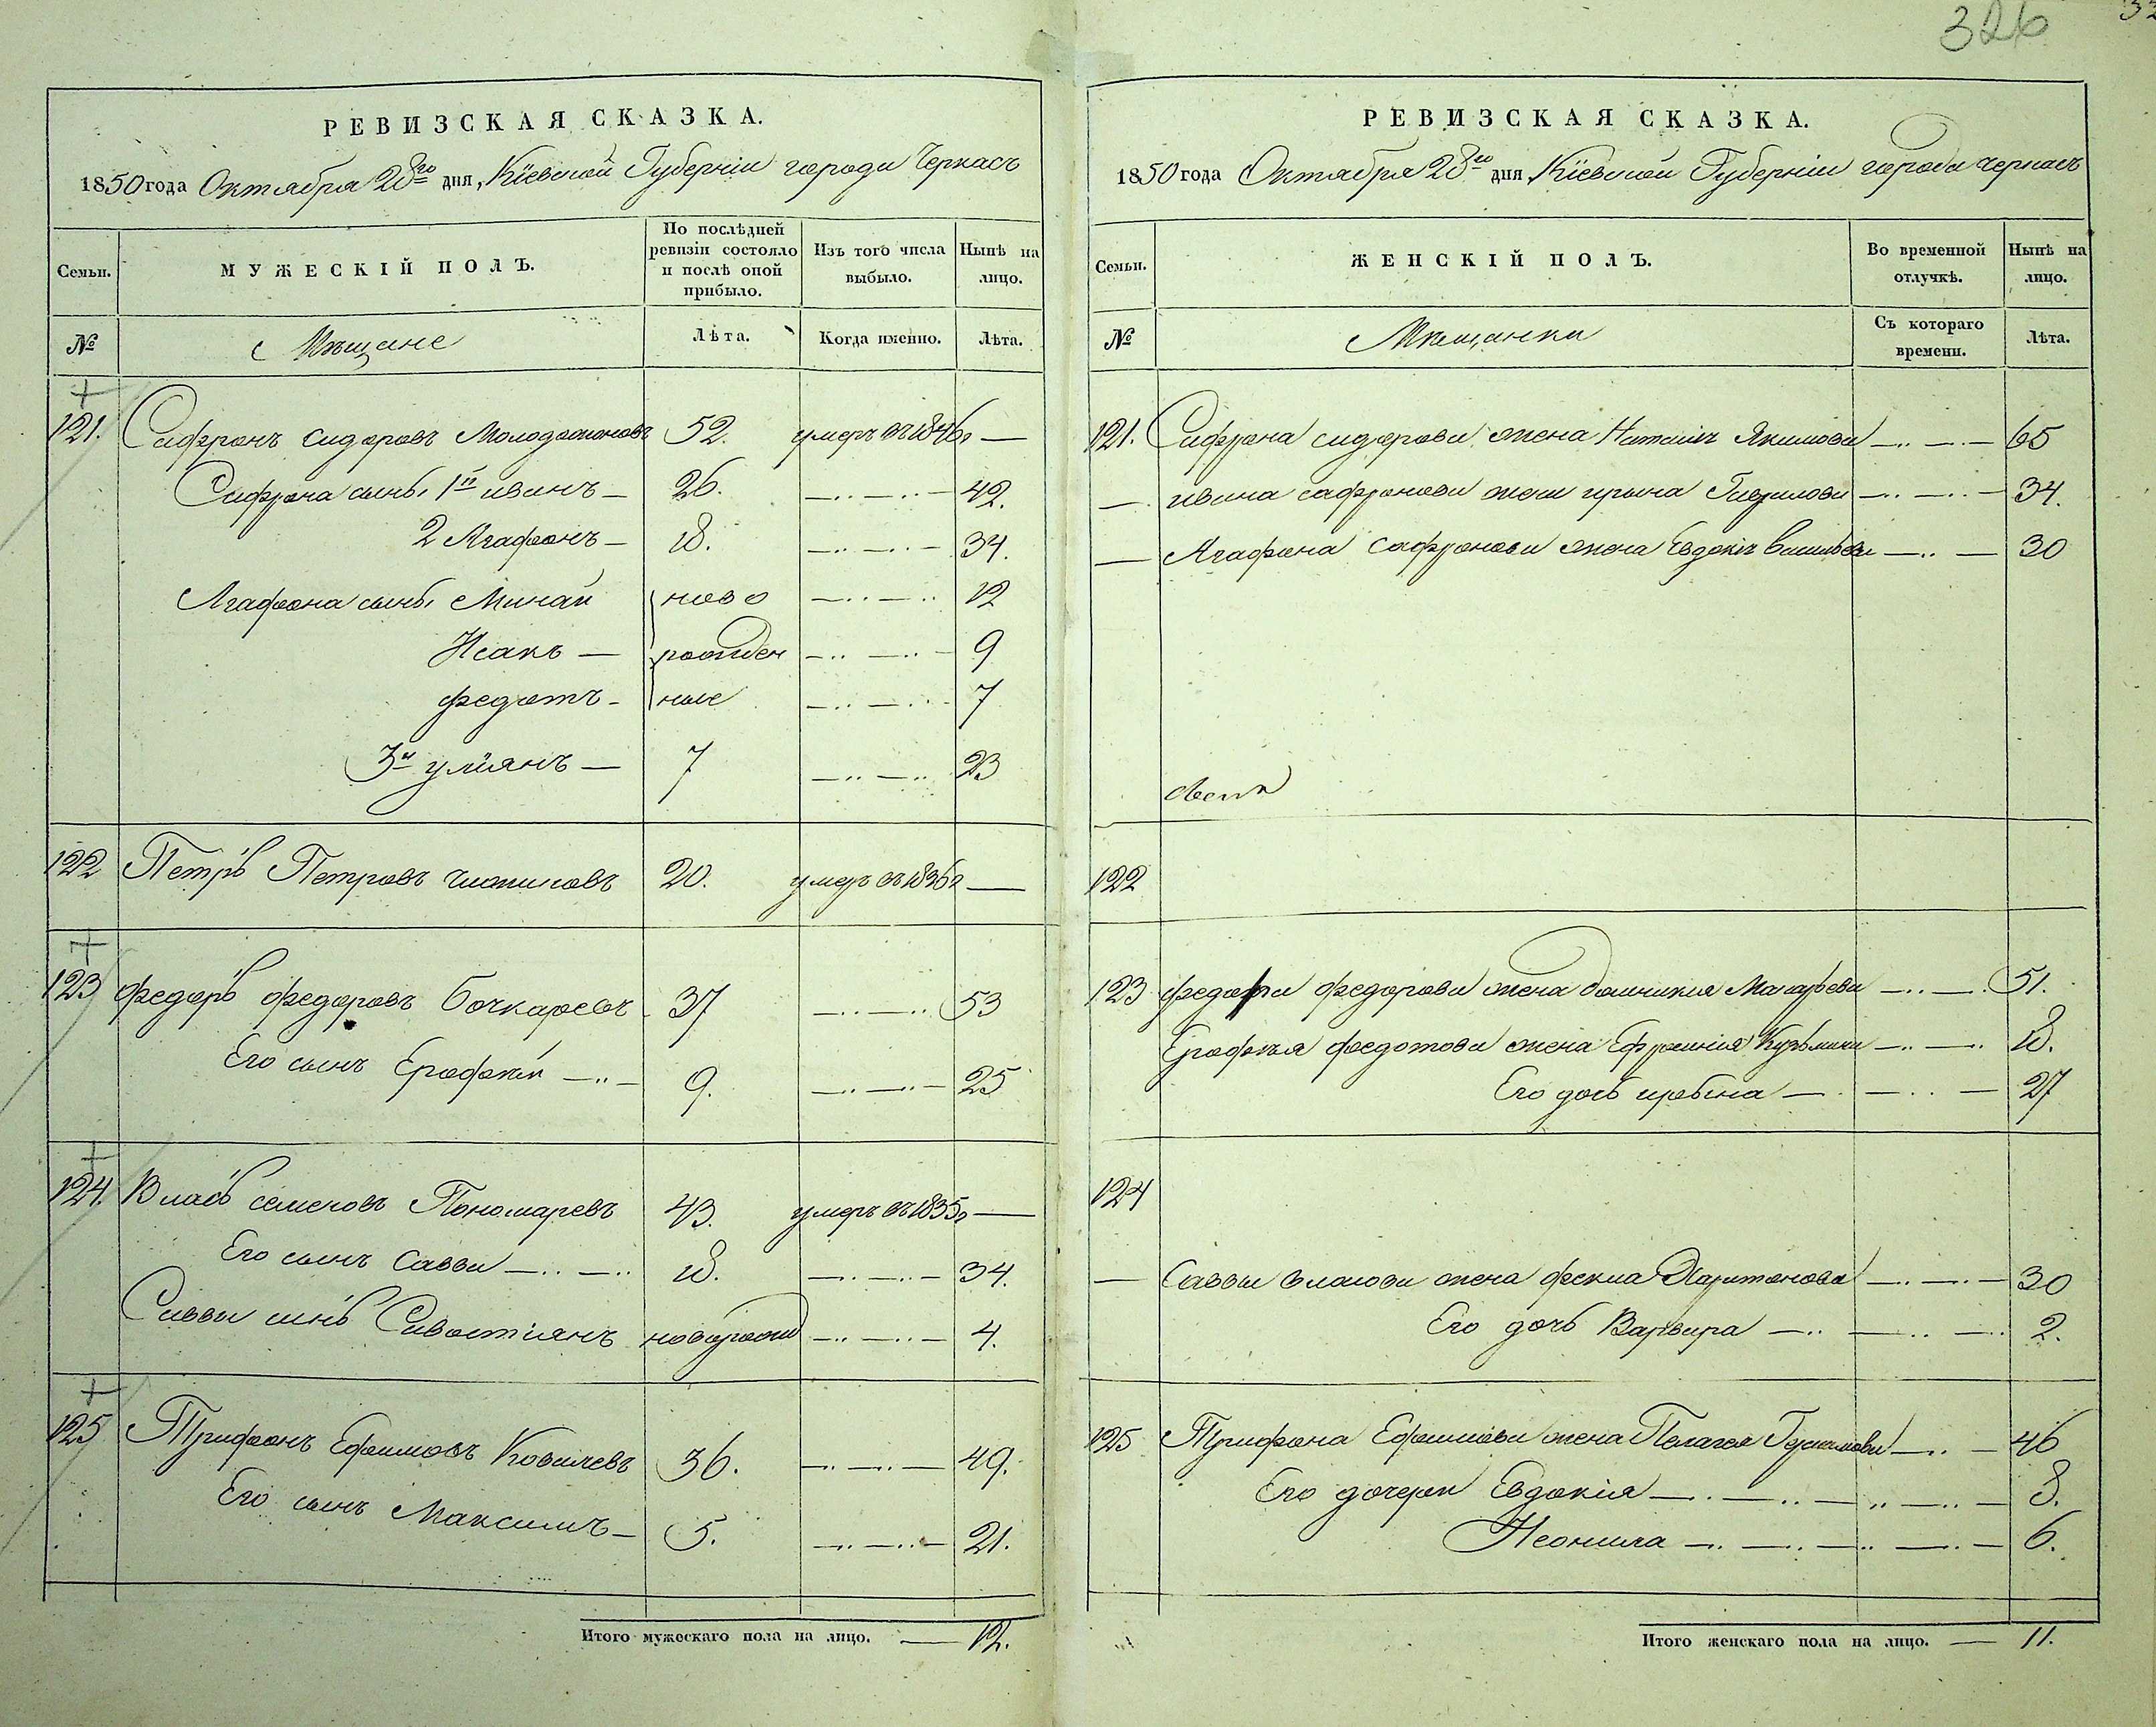 326
РЕВИЗСКАЯ СКАЗКА.
1850 года Октября 28го дня, Кіевской Губерніи города Черкасъ
Семьи.
МУЖЕСКІЙ ПОЛЪ.
По послѣдней ревизіи состояло и послѣ оной прибыло.
Изъ того числа выбыло.
Нынѣ на лицо.
№
Мѣщане
Лѣта.
Когда именно.
Лѣта.
121. Сафронъ Сидоровъ 52. умеръ въ 1846г —
Сафрона сынъ 1й иванъ — 26. — 42.
2 Агафонъ — 18. — 34.
Агафона сынъ Минай ново — 12
Исакъ — рожден — 9
федотъ — ные — 7
3й улиянъ — 7 — 23
122 Петръ Петровъ 20. умеръ въ 1836г —
123 федоръ федоровъ Бочкаревъ 37 — 53
Его сынъ Ерофѣй — 9. — 25
124. Власъ семеновъ Пономаревъ 43. умеръ въ 1835г —
Его сынъ Савва — 18. — 34.
Саввы сынъ Савостиянъ новорожд — 4.
125 Трифонъ Ефимовъ Ковалевъ 36. — 49.
Его сынъ Максимъ — 5. — 21.
Итого мужескаго пола на лицо. — 12.
РЕВИЗСКАЯ СКАЗКА.
1850 года Октября 28го дня, Кіевской Губерніи города черкасъ
Семьи.
ЖЕНСКІЙ ПОЛЪ.
Во временной отлучкѣ.
Нынѣ на лицо.
№
Мѣщанки
Съ котораго времени.
Лѣта.
121. Сафрона сидорова жена Наталия Якимова — 65
— ивана сафронова жена ирына Гаврилова — 34.
— Агафона сафронова жена Евдокія васильева — 30
122
123 федора федорова жена — 51.
Ерофѣя федотова жена Ефросинія Кузьмина — 18.
Его дочь — 27
124
— Саввы власова жена фекла Харитонова — 30
Его дочь Варвара — 2.
125 Трифона Ефимова жена Пелагея — 46
Его дочери Евдокія — 8.
Неонила — 6.
Итого женскаго пола на лицо. — 11.